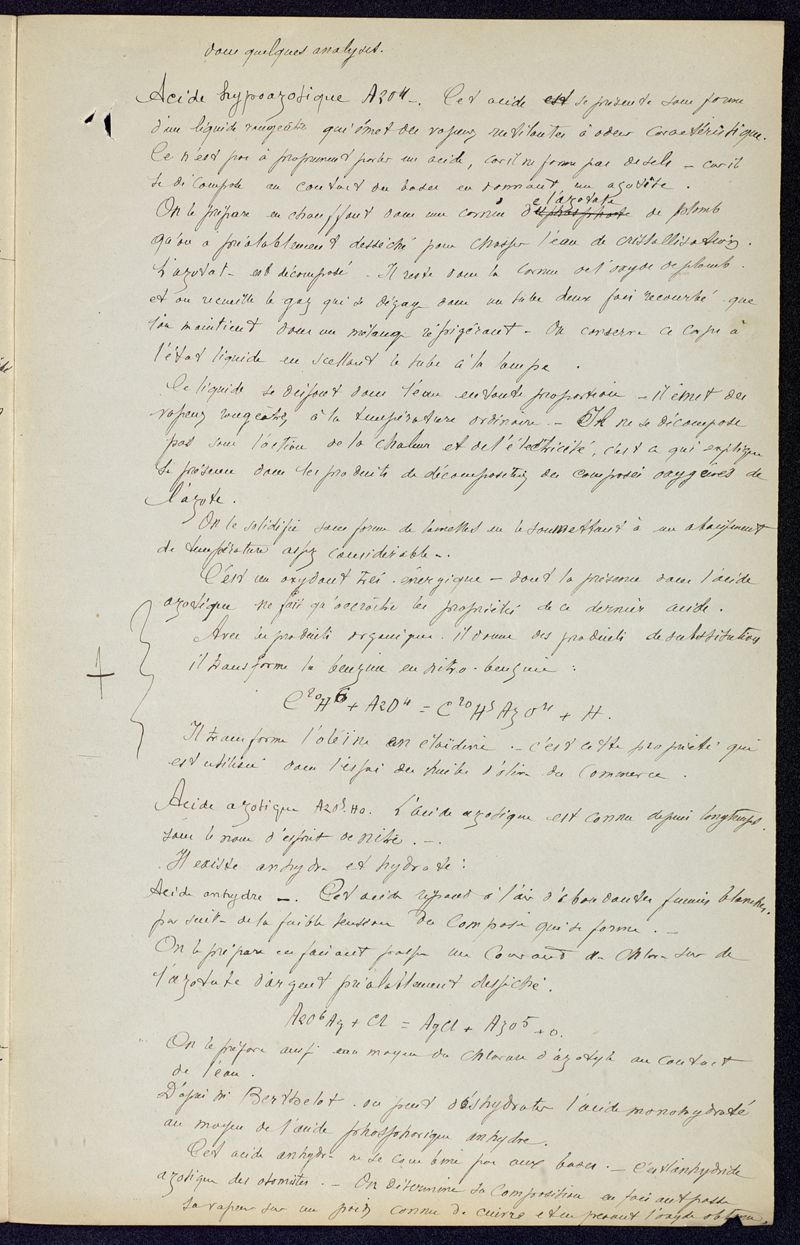 dans quelques analyses.
Acide hypoazotique AzO4 —. Cet acide est se présente sous forme
d'un liquide rougeâtre qui émet des vapeurs rutilantes à odeur caractéristique.
Ce n'est pas à proprement parler un acide, car il ne forme pas de sels — car il
se décompose au contact des bases en donnant un azotite.
On le prépare en chauffant dans une cornue de l'azotate de plomb
qu'on a préalablement desséché pour chasser l'eau de cristallisation.
L'azotate est décomposé. Il reste dans la cornue de l'oxyde de plomb.
et on recueille le gaz qui se dégage dans un tube deux fois recourbé que
l'on maintient dans un mélange réfrigérant — On conserve ce corps à
l'état liquide en scellant le tube à la lampe.
Ce liquide se dissout dans l'eau en toute proportion — il émet des
vapeurs rougeâtres à la température ordinaire. — Il ne se décompose
pas sous l'action de la chaleur et de l'électricité, c'est ce qui explique
sa présence dans les produits de décomposition des composés oxygénés de
l'azote.
On le solidifie sous forme de lamelles en le soumettant à un abaissement
de température assez considérable —.
C'est un oxydant très énergique — dont la présence dans l'acide
azotique ne fait qu'accroître les propriétés de ce dernier acide.
Avec les produits organiques il donne des produits de substitution
il transforme la benzine en nitro-benzine :
C20H6 + AzO4 = C20H5AzO4 + H.
Il transforme l'oléine en élaïdine. — c'est cette propriété qui
est utilisée dans l'essai des huiles d'olive du commerce.
Acide azotique AzO5.HO. L'acide azotique est connu depuis longtemps
sous le nom d'esprit de nitre. —.
Il existe anhydre et hydraté :
Acide anhydre —. Cet acide répand à l'air d'abondantes fumées blanches,
par suite de la faible tension du composé qui se forme. —
On le prépare en faisant passer un courant de chlore sur de
l'azotate d'argent préalablement desséché.
AzO6Ag + Cl = AgCl + AzO5 + O.
On le prépare aussi au moyen du chlorure d'azotyle au contact
de l'eau.
D'après Mr Berthelot on peut déshydrater l'acide monohydraté
au moyen de l'acide phosphorique anhydre.
Cet acide anhydre ne se combine pas aux bases. — C'est l'anhydride
azotique des atomistes. — On détermine sa composition en faisant passer
sa vapeur sur un poids connu de cuivre et en pesant l'oxyde obtenu.